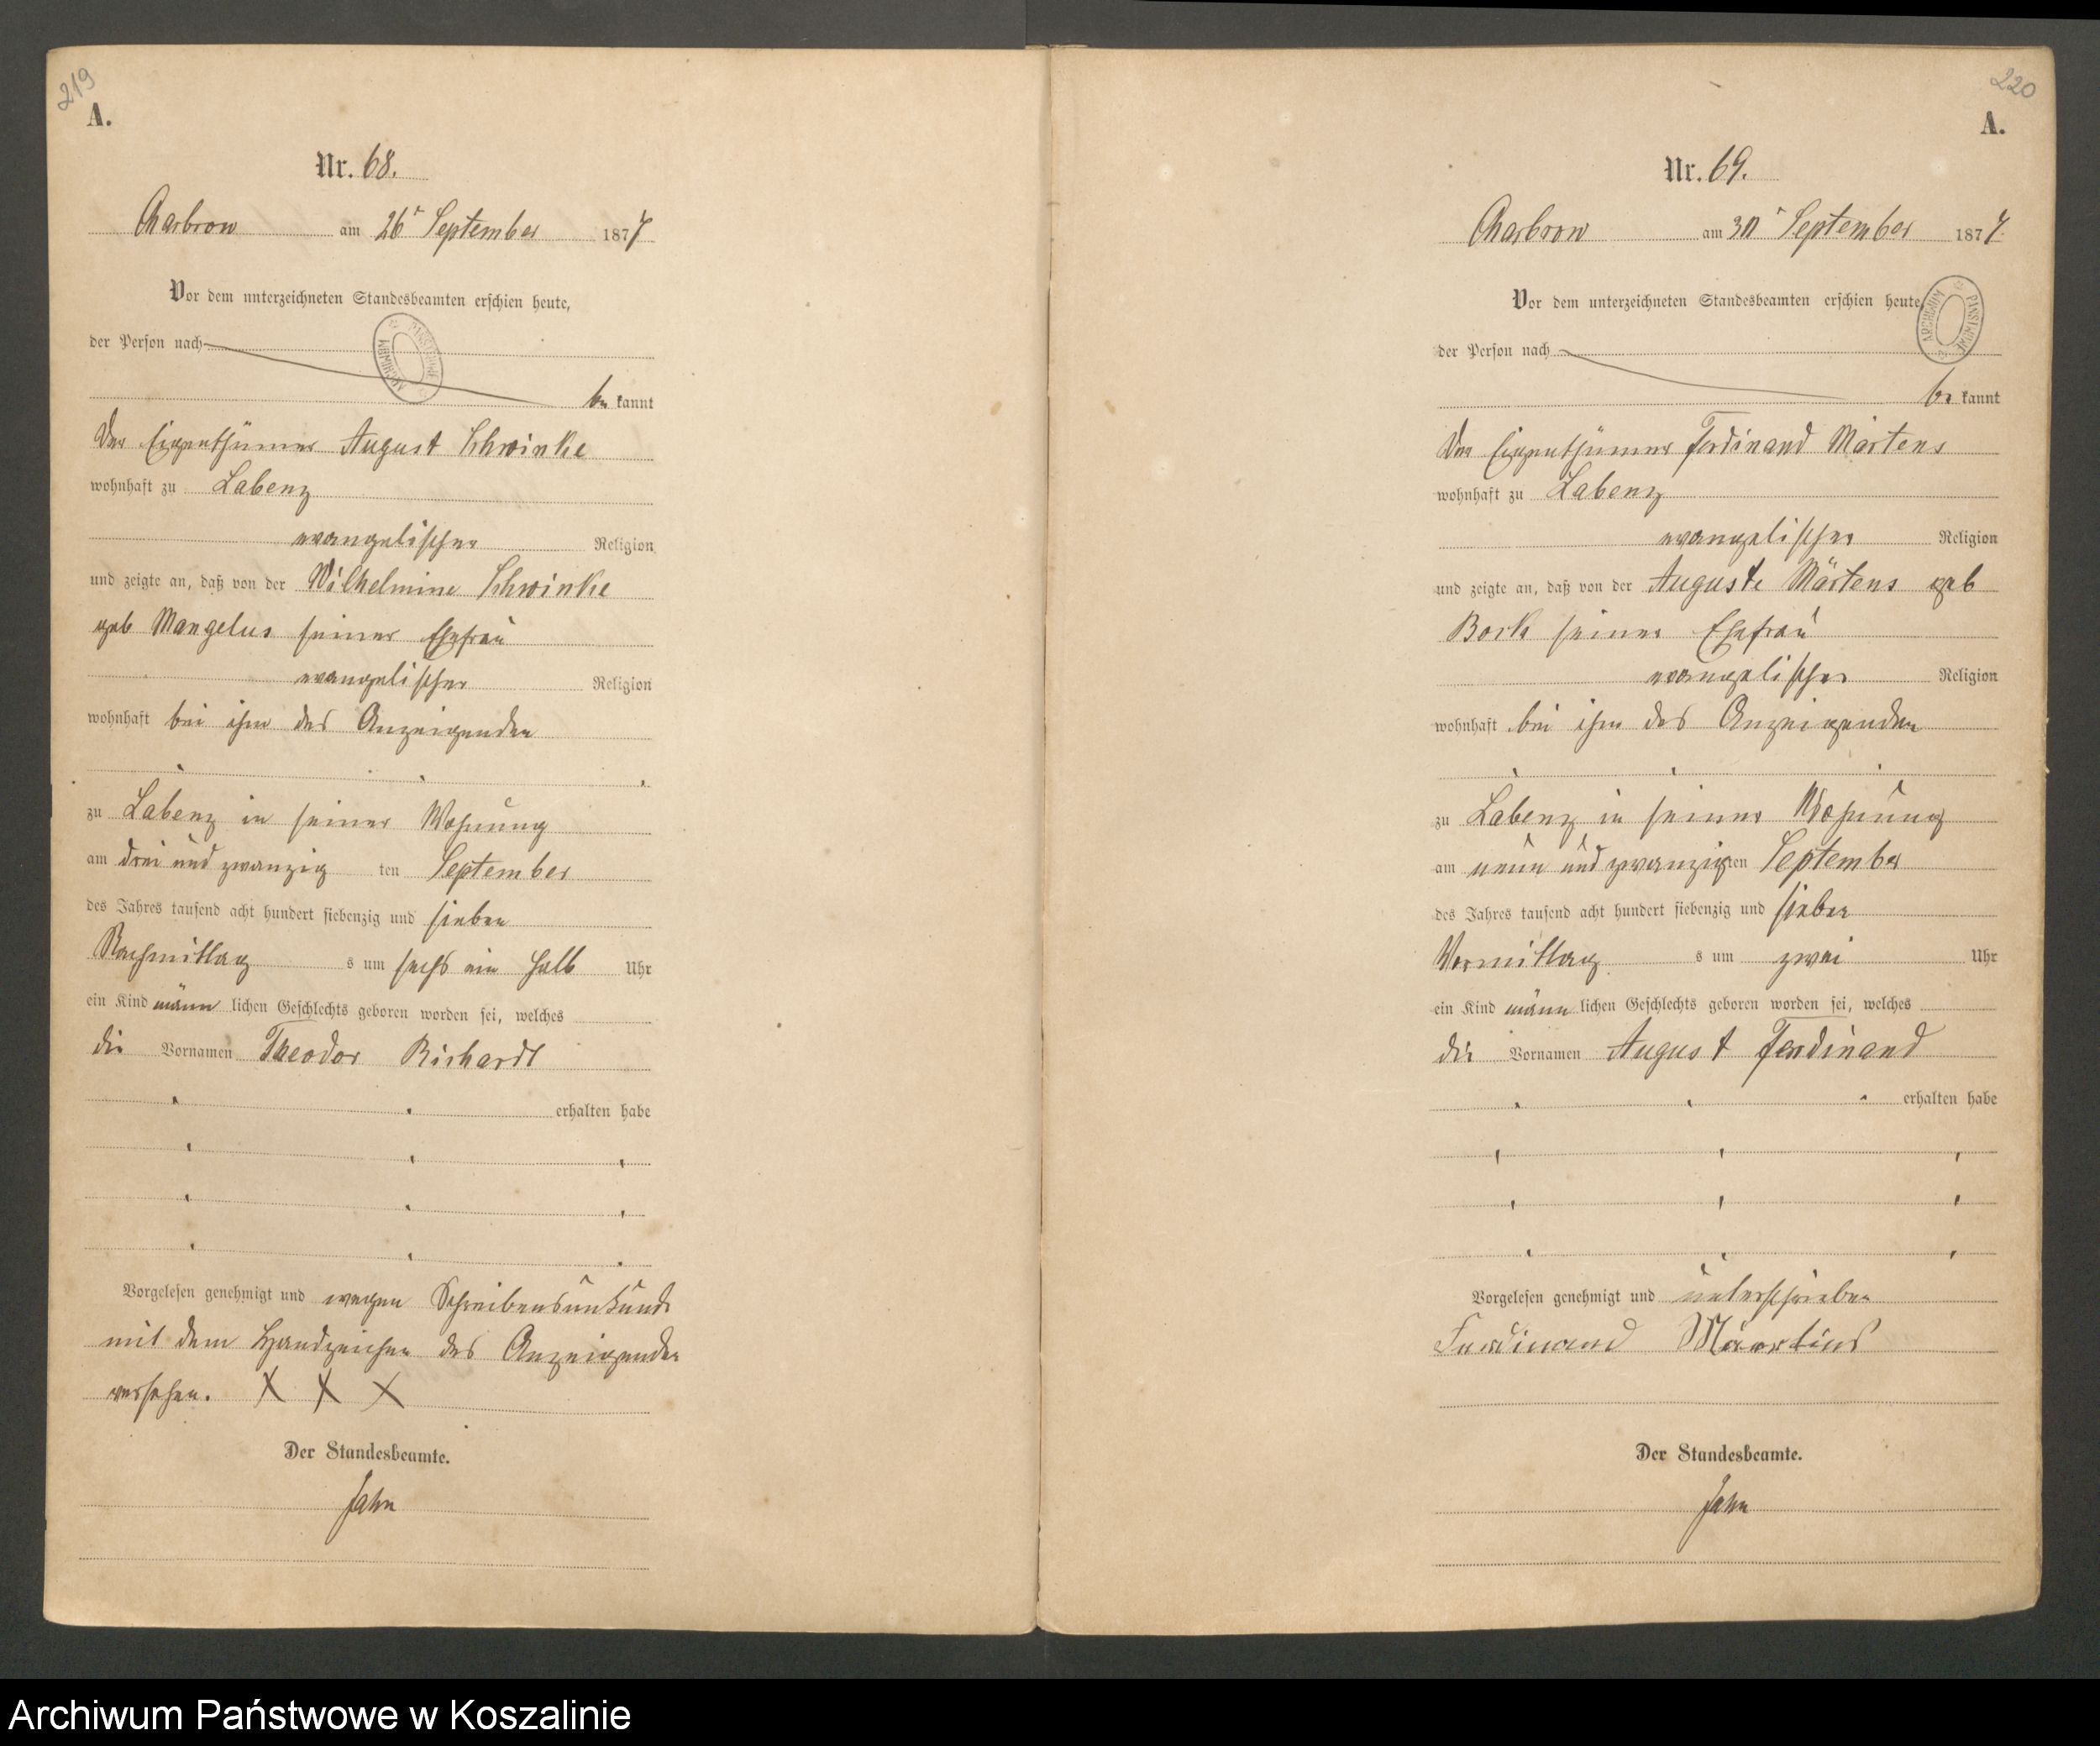 219
A.
Nr. 68.
Charbrow am 26ᵗ September 1877
Vor dem unterzeichneten Standesbeamten erschien heute,
der Person nach
be kannt
Der Eigenthümer August Schwinke
wohnhaft zu Labenz
evangelischer Religion
und zeigte an, daß von der Wilhelmine Schwinke
geb Mangelus seiner Ehefrau
evangelischer Religion
wohnhaft bei ihm des Anzeigenden
zu Labenz in seiner Wohnung
am drei und zwanzig ten September
des Jahres tausend acht hundert siebenzig und sieben
Nachmittag s um sechs ein halb Uhr
ein Kind männ lichen Geschlechts geboren worden sei, welches
die Vornamen Theodor Richardt
erhalten habe
Vorgelesen genehmigt und wegen Schreibensunkunde
mit dem Handzeichen des Anzeigenden
versehen. X X X
Der Standesbeamte.
Jahn
220
A.
Nr. 69.
Charbrow am 30ᵗ September 1877.
Vor dem unterzeichneten Standesbeamten erschien heute
der Person nach
be kannt
Der Eigenthümer Ferdinand Märtens
wohnhaft zu Labenz
evangelischer Religion
und zeigte an, daß von der Auguste Märtens geb
Bock seiner Ehefrau
evangelischer Religion
wohnhaft bei ihm des Anzeigenden
zu Labenz in seiner Wohnung
am neun und zwanzigten September
des Jahres tausend acht hundert siebenzig und sieben
Vormittag s um zwei Uhr
ein Kind männ lichen Geschlechts geboren worden sei, welches
die Vornamen August Ferdinand
erhalten habe
Vorgelesen genehmigt und unterschrieben
Ferdinand
Der Standesbeamte.
Jahn
Archiwum Państwowe w Koszalinie